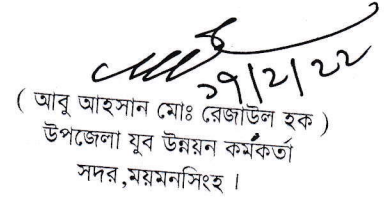 ০৭/২/২২
( আবু আহসান মোঃ রেজাউল হক )
উপজেলা যুব উন্নয়ন কর্মকর্তা
সদর ,ময়মনসিংহ ।